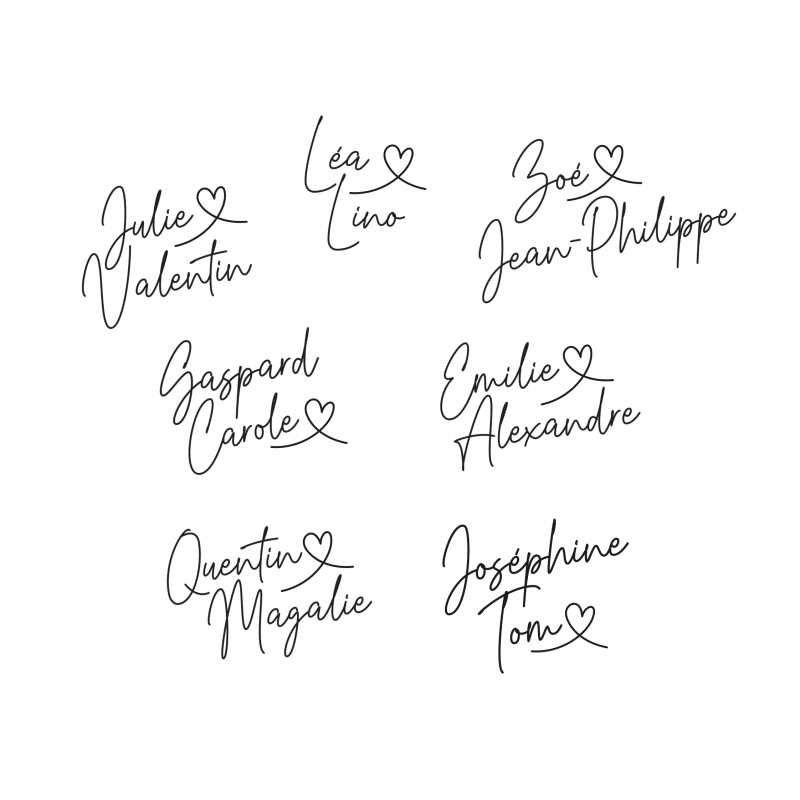 Léa
Lino
Zoé
Jean-Philippe
Julie
Valentin
Gaspard
Carole
Emilie
Alexandre
Quentin
Magalie
Joséphine
Tom